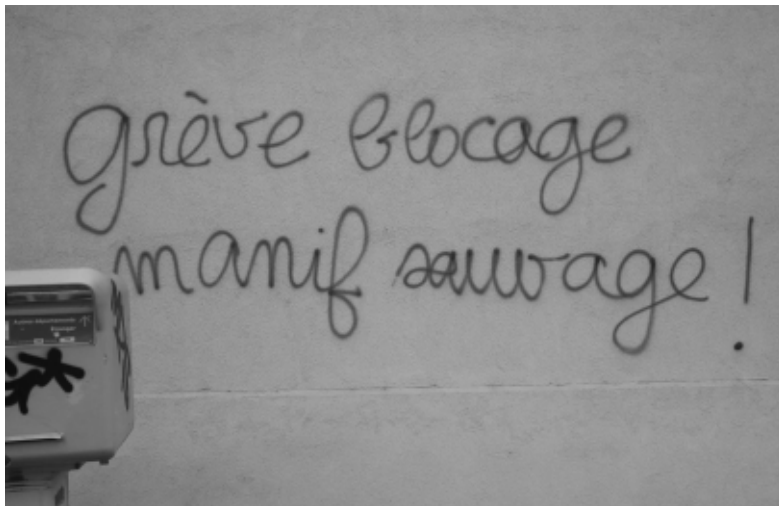 grève blocage
manif sauvage !